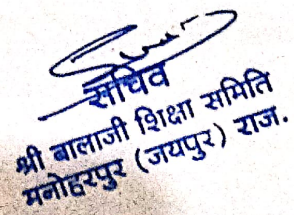 सचिव
श्री बालाजी शिक्षा समिति
मनोहरपुर (जयपुर) राज.